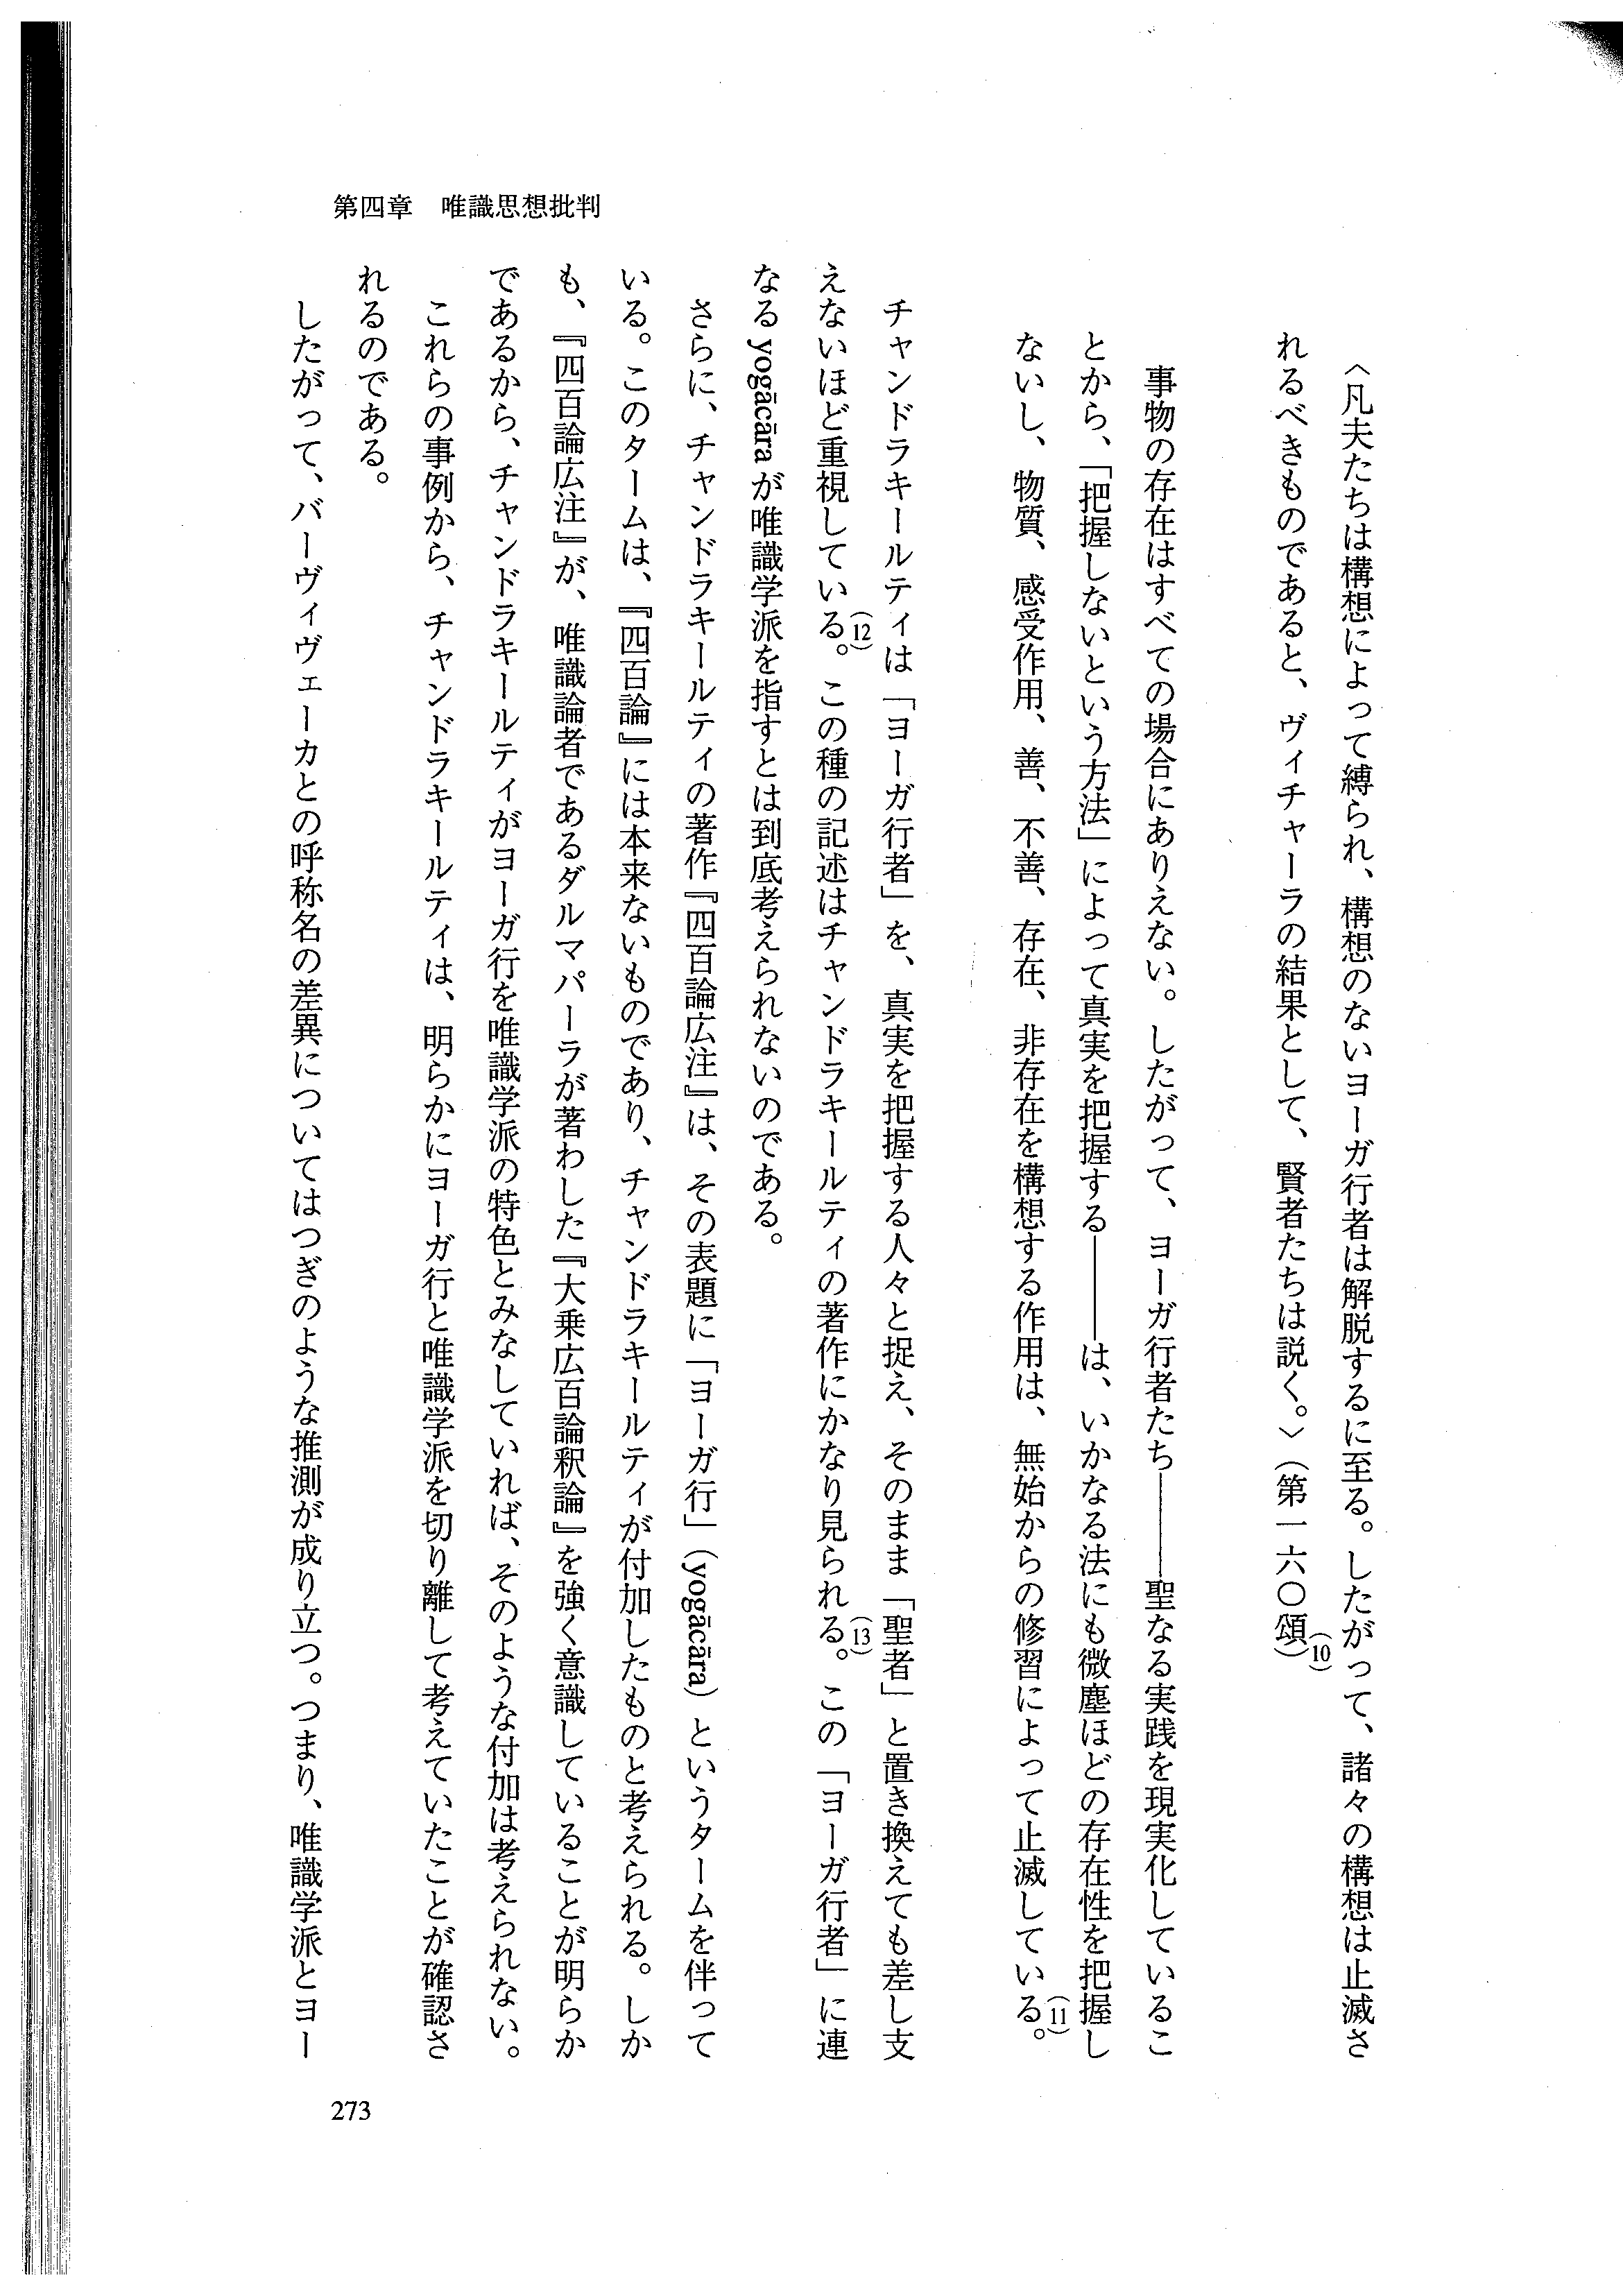 第四章　唯識思想批判
〈凡夫たちは構想によって縛られ、構想のないヨーガ行者は解脱するに至る。したがって、諸々の構想は止滅さ
れるべきものであると、ヴィチャーラの結果として、賢者たちは説く。〉（第一六〇頌）(10)
事物の存在はすべての場合にありえない。したがって、ヨーガ行者たち――聖なる実践を現実化しているこ
とから、「把握しないという方法」によって真実を把握する――は、いかなる法にも微塵ほどの存在性を把握し
ないし、物質、感受作用、善、不善、存在、非存在を構想する作用は、無始からの修習によって止滅している。(11)
チャンドラキールティは「ヨーガ行者」を、真実を把握する人々と捉え、そのまま「聖者」と置き換えても差し支
えないほど重視している。(12)この種の記述はチャンドラキールティの著作にかなり見られる。(13)この「ヨーガ行者」に連
なる yogācāra が唯識学派を指すとは到底考えられないのである。
さらに、チャンドラキールティの著作『四百論広注』は、その表題に「ヨーガ行」（yogācāra）というタームを伴って
いる。このタームは、『四百論』には本来ないものであり、チャンドラキールティが付加したものと考えられる。しか
も、『四百論広注』が、唯識論者であるダルマパーラが著わした『大乗広百論釈論』を強く意識していることが明らか
であるから、チャンドラキールティがヨーガ行を唯識学派の特色とみなしていれば、そのような付加は考えられない。
これらの事例から、チャンドラキールティは、明らかにヨーガ行と唯識学派を切り離して考えていたことが確認さ
れるのである。
したがって、バーヴィヴェーカとの呼称名の差異についてはつぎのような推測が成り立つ。つまり、唯識学派とヨー
273